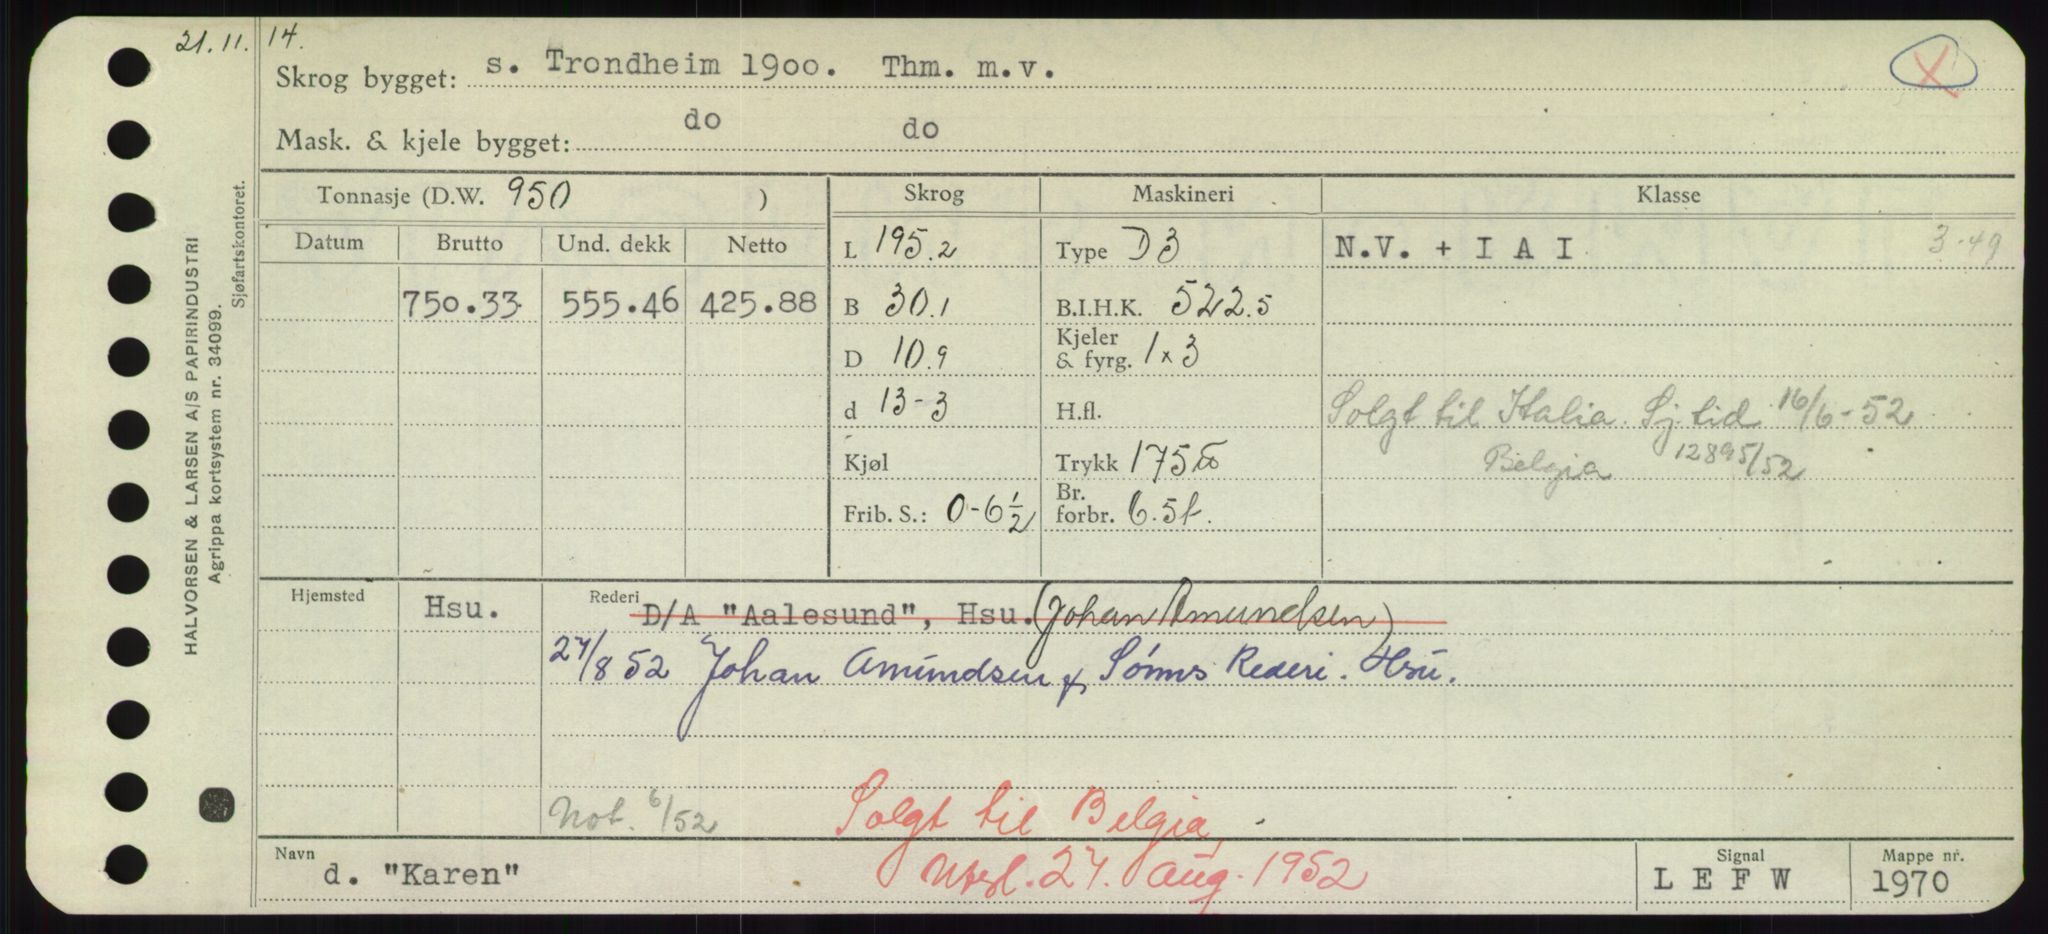 21.11.14.
Skrog bygget: s. Trondheim 1900. Thm. m.v.
Mask. & kjele bygget: do do
Tonnasje (D.W. 950 ) Skrog Maskineri Klasse
Datum Brutto Und. dekk Netto L 195.2 Type D3 N.V. + I A I 3-49
750.33 555.46 425.88 B 30.1 B.I.H.K. 522.5
D 10.9 Kjeler & fyrg. 1x3
d 13-3 H.fl. Solgt til Italia. Sj. tid 16/6-52
Kjøl Trykk 175 Belgia 12895/52
Frib. S.: 0-6 1/2 Br. forbr. 6.5t.
Hjemsted Hsu. Rederi D/A "Aalesund", Hsu. (Johan Amundsen)
27/8 52 Johan Amundsen & Sønns Rederi. Hsu.
Not. 6/52 Solgt til Belgia,
Navn d. "Karen" Utsl. 27. aug. 1952 Signal LEFW Mappe nr. 1970
HALVORSEN & LARSEN A/S PAPIRINDUSTRI
Agrippa kortsystem nr. 34099.
Sjøfartskontoret.